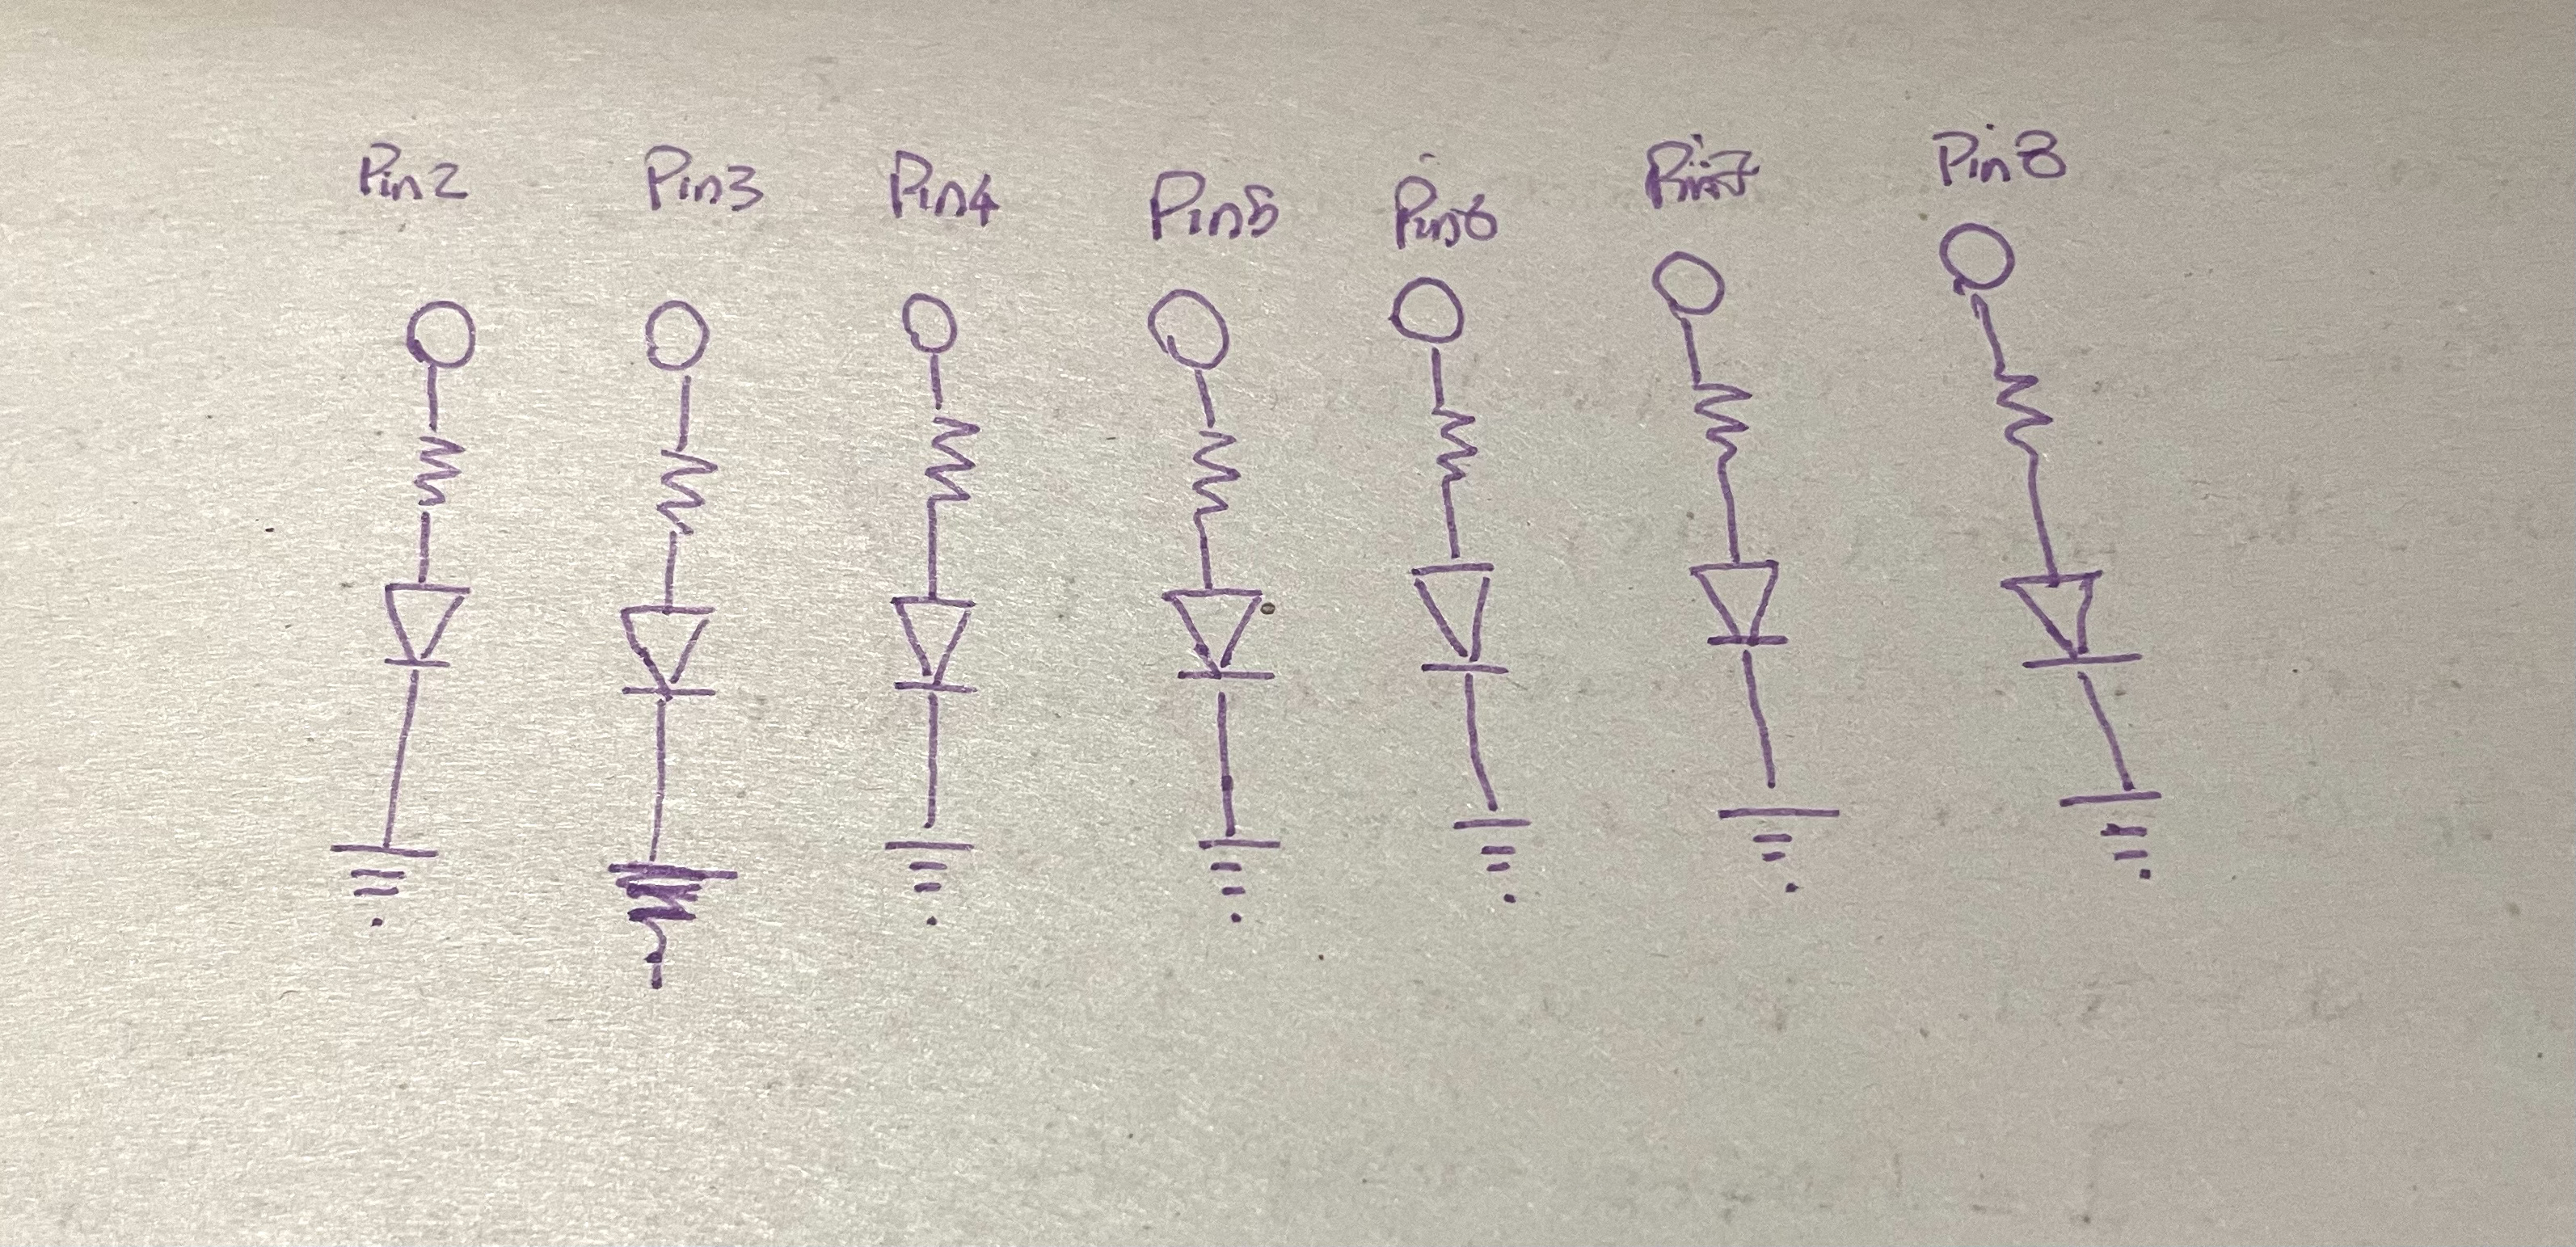 Pin2 Pin3 Pin4 Pin5 Pin6 Pin7 Pin8